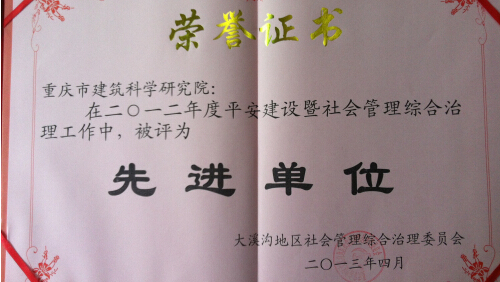 荣誉证书
重庆市建筑科学研究院：
在二〇一二年度平安建设暨社会管理综合治
理工作中，被评为
先进单位
大溪沟地区社会管理综合治理委员会
二〇一三年四月